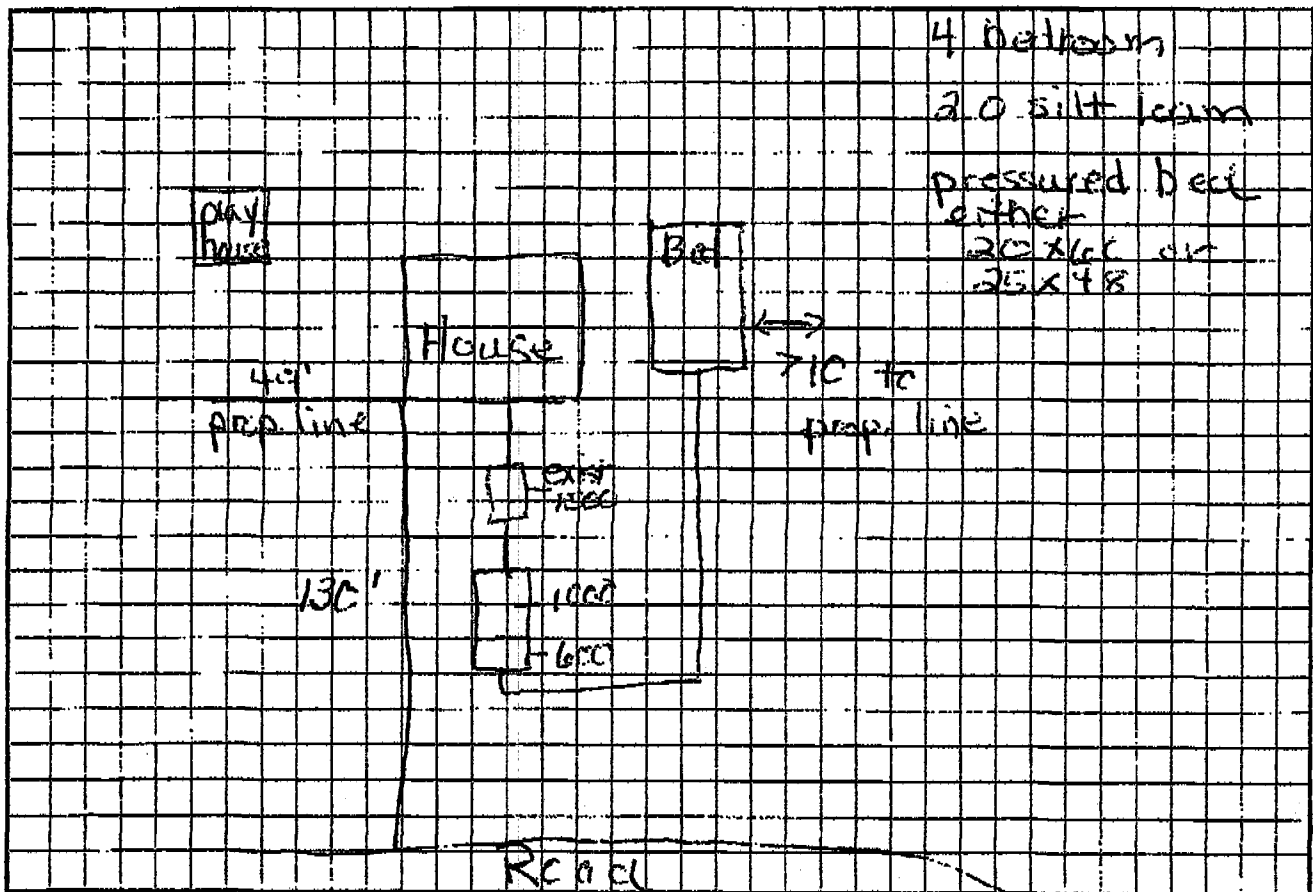 4 bedroom
2.0 silt loam
pressured bed
either
20 x 60 or
25 x 48
play
house
Bed
House
>10' to
prop. line
40'
prop. line
exist
1000
130'
1000
600
Road